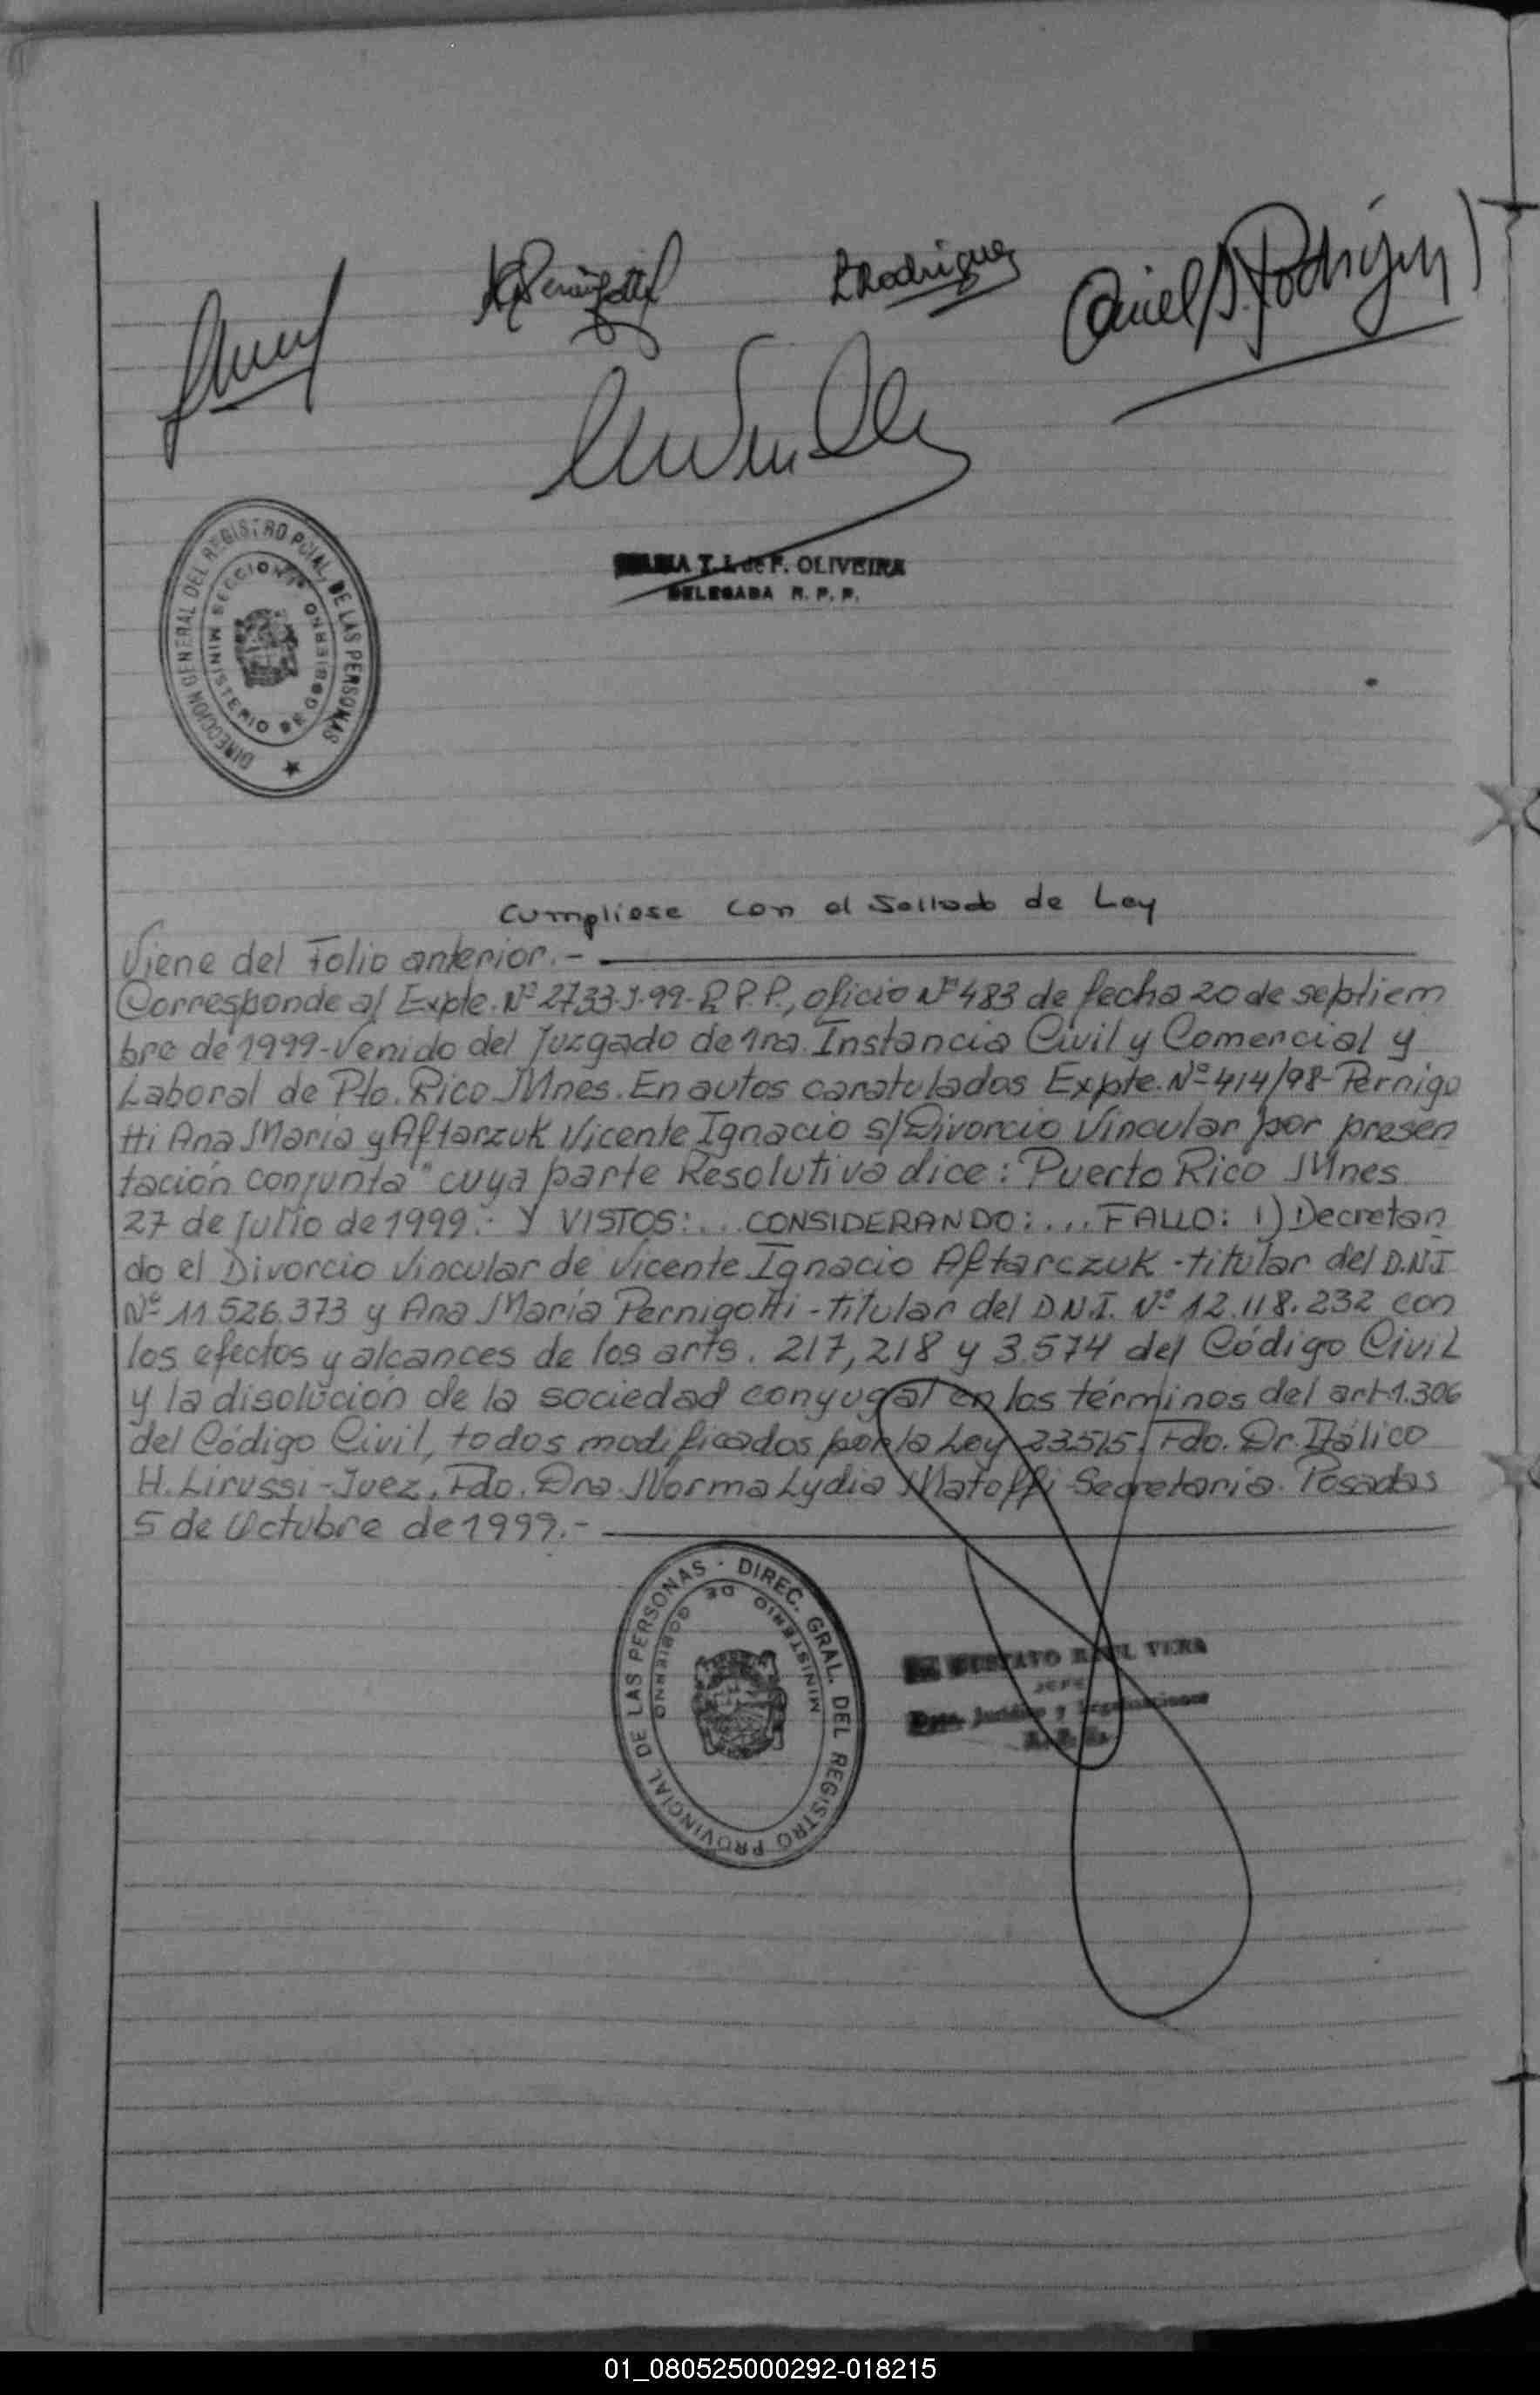 APernigotti
RRodriguez
Daniel S. Rodriguez
DIRECCION GENERAL DEL REGISTRO PCIAL. DE LAS PERSONAS
MINISTERIO DE GOBIERNO
T. L. de F. OLIVEIRA
DELEGADA R. P. P.
Cumpliose con el Sellado de Ley
Viene del Folio anterior.-
Corresponde al Expte. Nº 2733-J-99-R.P.P., oficio Nº 483 de fecha 20 de septiem
bre de 1999-Venido del Juzgado de 1ra. Instancia Civil y Comercial y
Laboral de Pto. Rico Mnes. En autos caratulados Expte. Nº 414/98- Pernigo
tti Ana María y Aftarzuk Vicente Ignacio s/Divorcio Vincular por presen
tación conjunta" cuya parte Resolutiva dice: Puerto Rico Mnes
27 de Julio de 1999.- Y VISTOS:... CONSIDERANDO:... FALLO: 1) Decretan
do el Divorcio Vincular de Vicente Ignacio Aftarczuk -titular del D.N.I
Nº 11.526.373 y Ana María Pernigotti -titular del D.N.I. Nº 12.118.232 con
los efectos y alcances de los arts. 217, 218 y 3.574 del Código Civil
y la disolución de la sociedad conyugal en los términos del art 1.306
del Código Civil, todos modificados por la Ley 23.515. Fdo. Dr. Itálico
H. Lirussi -Juez. Fdo. Dra. Norma Lydia Matoffi Secretaria. Posadas
5 de Octubre de 1999.-
DIREC. GRAL. DEL REGISTRO PROVINCIAL DE LAS PERSONAS
MINISTERIO DE GOBIERNO
GUSTAVO RAUL VERA
JEFE
01_080525000292-018215